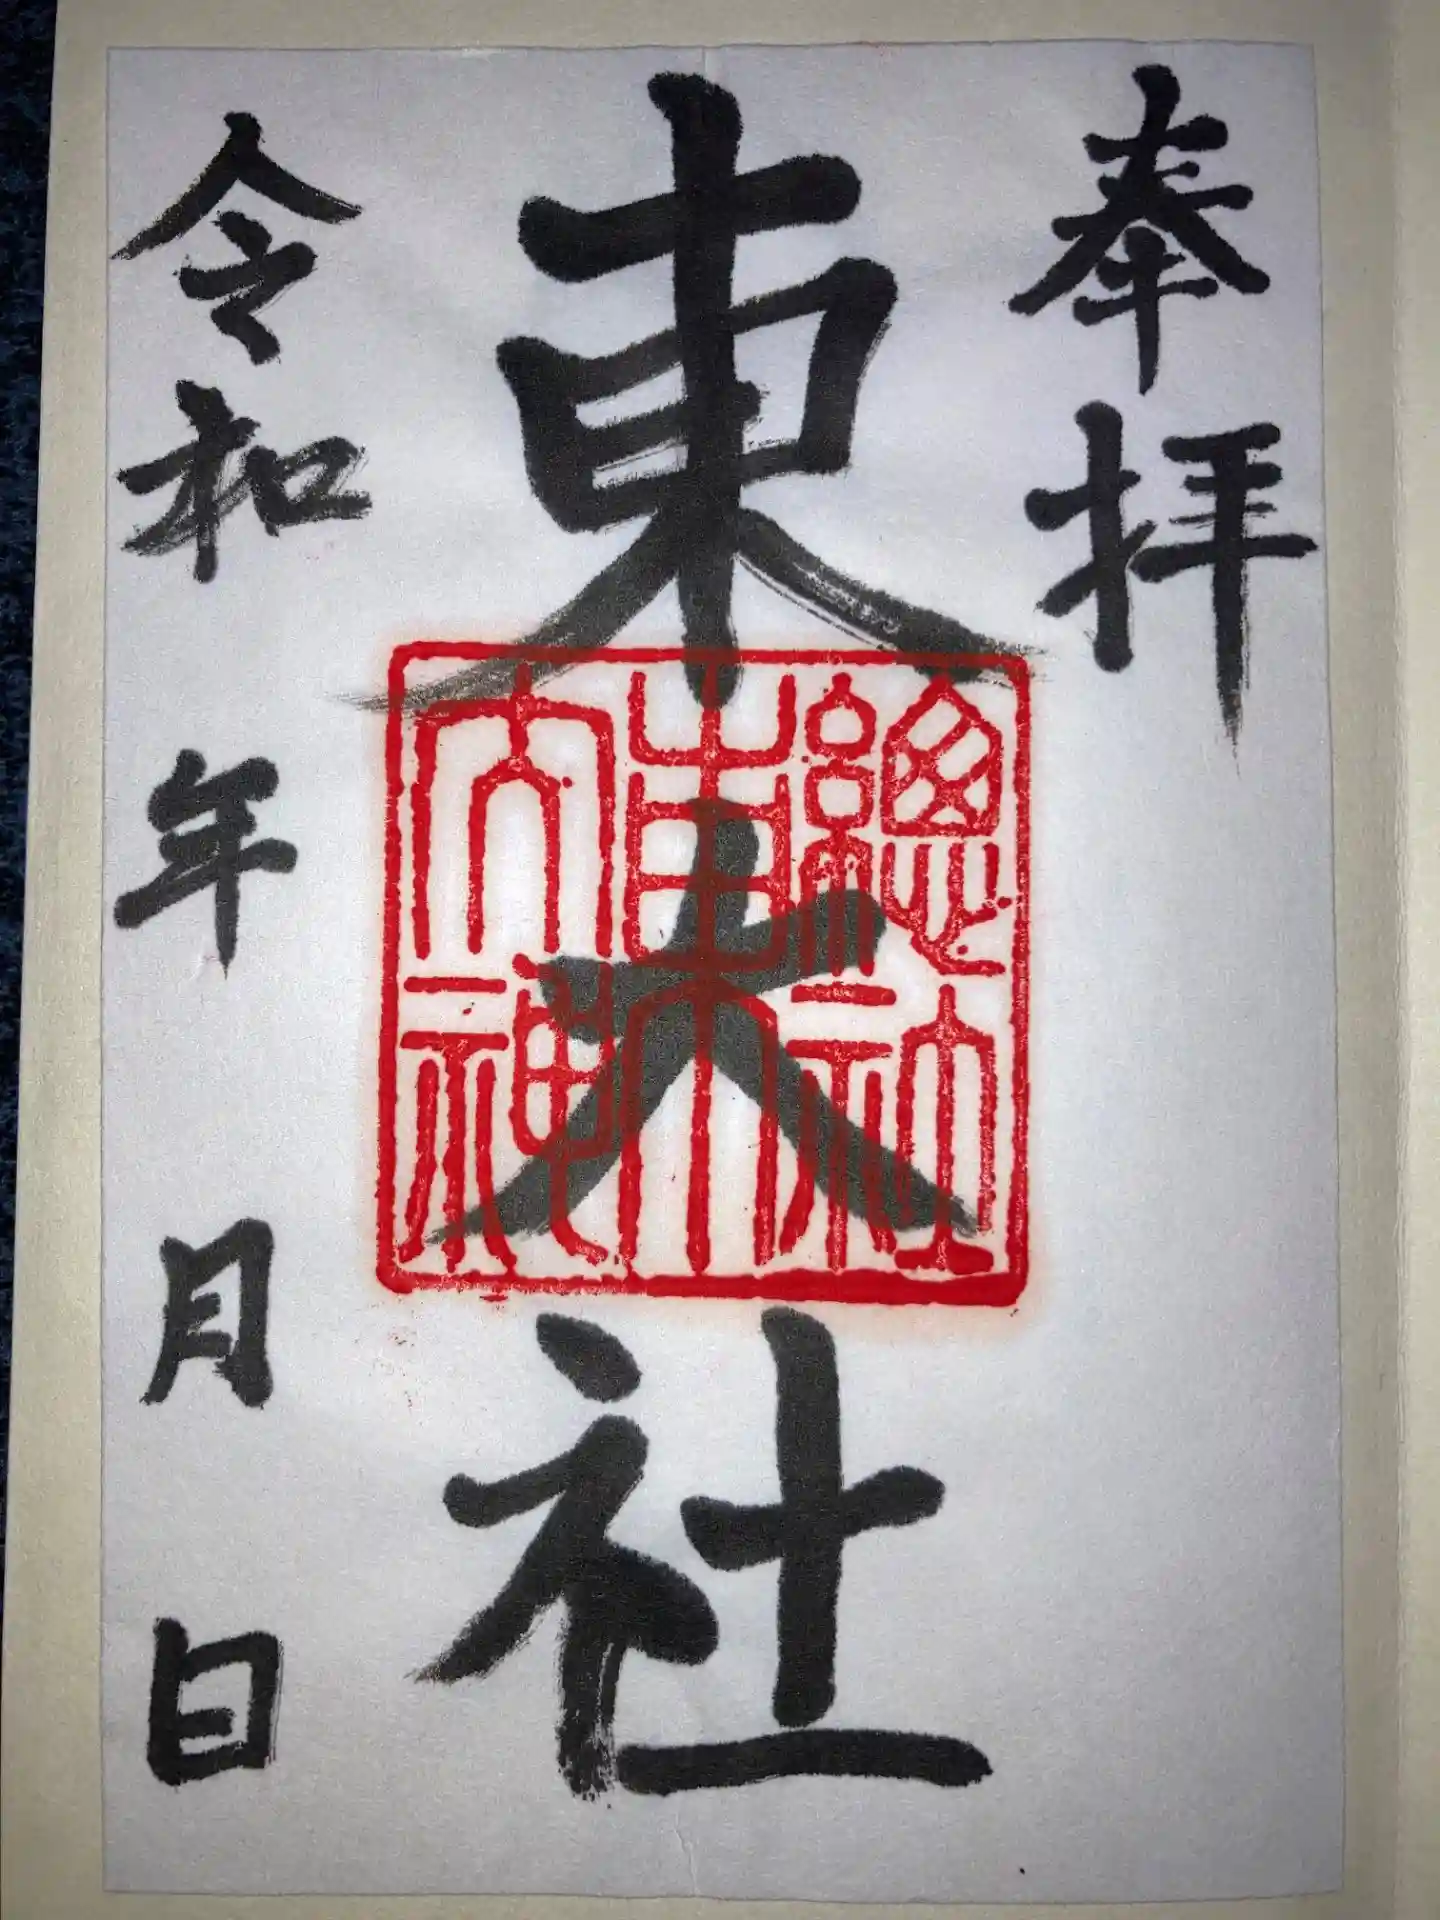 奉拝
東大社
總社
東
大神
令和 年 月 日